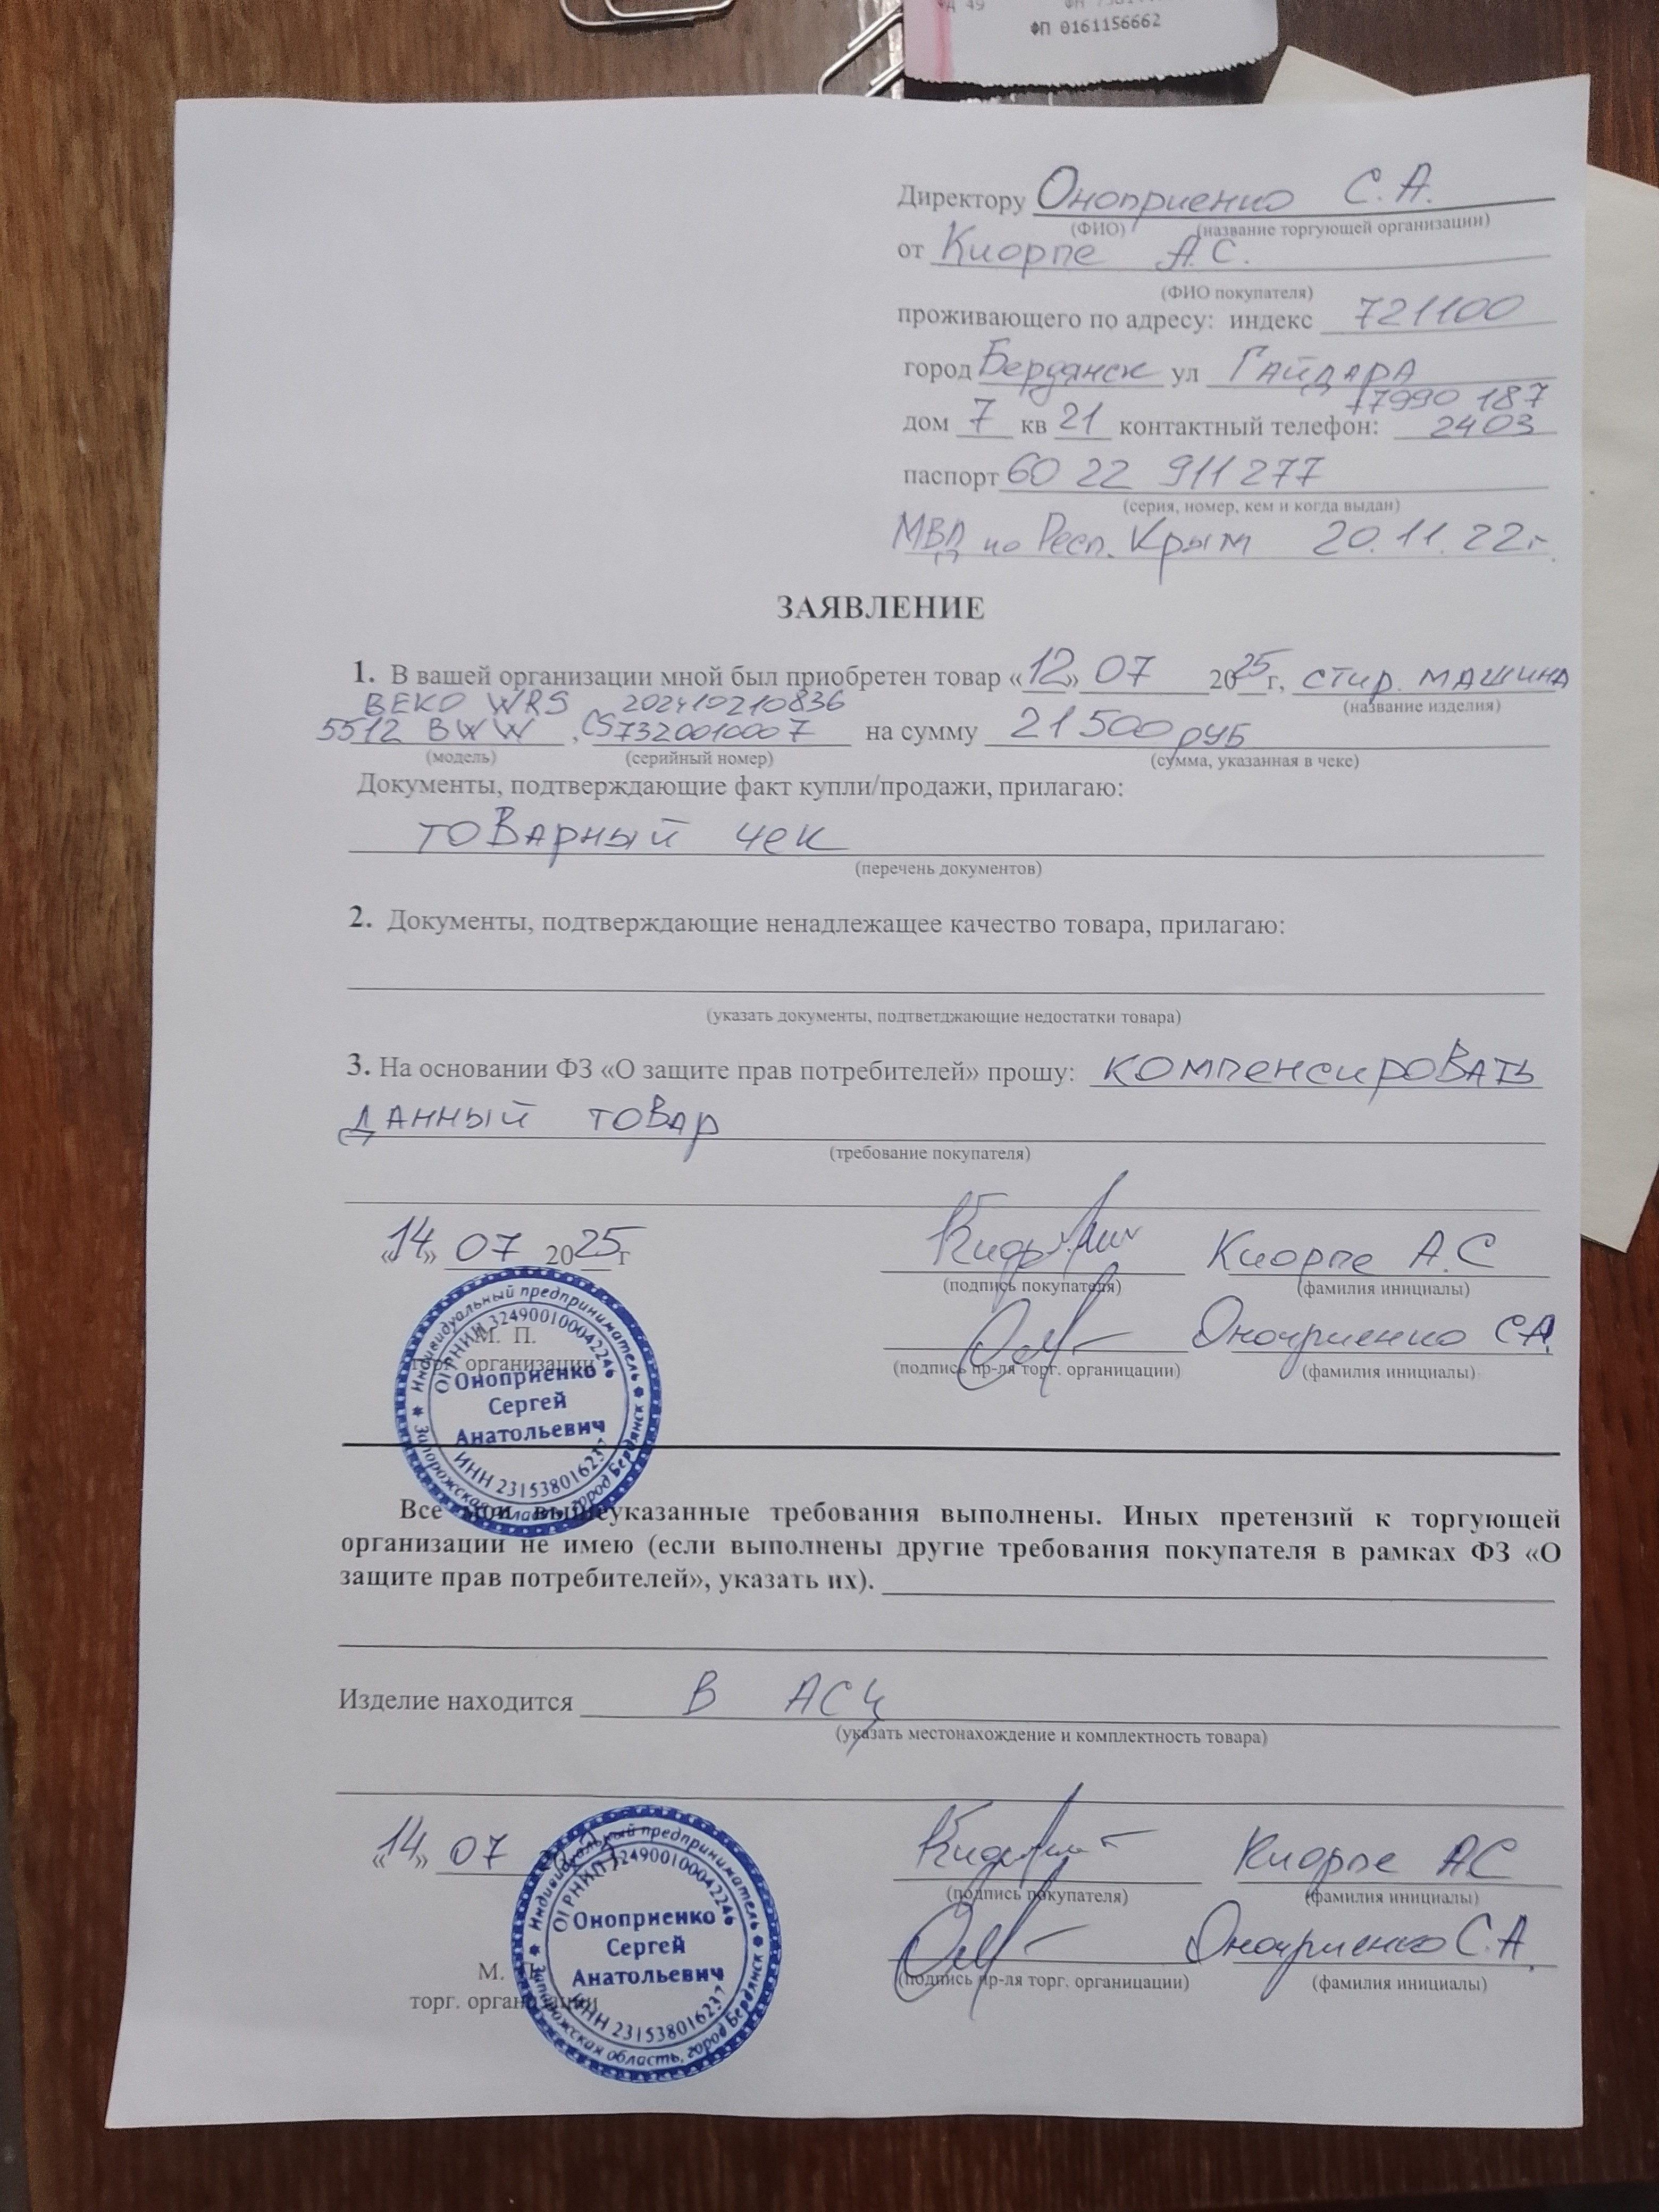 ФП 0161156662
Директору Оноприенко С.А.
(ФИО) (название торгующей организации)
от Киорпе А.С.
(ФИО покупателя)
проживающего по адресу: индекс 721100
город Бердянск ул Гайдара
+7990 187
дом 7 кв 21 контактный телефон: 2403
паспорт 60 22 911277
(серия, номер, кем и когда выдан)
МВД по Респ. Крым 20.11.22г.
ЗАЯВЛЕНИЕ
1. В вашей организации мной был приобретен товар «12» 07 2025г, стир. машина
(название изделия)
BEKO WRS 202410210836
5512 BWW, CS7320010007 на сумму 21500 руб
(модель) (серийный номер) (сумма, указанная в чеке)
Документы, подтверждающие факт купли/продажи, прилагаю:
товарный чек
(перечень документов)
2. Документы, подтверждающие ненадлежащее качество товара, прилагаю:
(указать документы, подтветджающие недостатки товара)
3. На основании ФЗ «О защите прав потребителей» прошу: компенсировать
данный товар
(требование покупателя)
«14» 07 2025г Киорпе А.С
(подпись покупателя) (фамилия инициалы)
Оноприенко СА.
(подпись пр-ля торг. органицации) (фамилия инициалы)
М. П.
торг. организации
Индивидуальный предприниматель
ОГРНИП 324900100042246
Оноприенко
Сергей
Анатольевич
ИНН 231538016237
Запорожская область, город Бердянск
Все мои вышеуказанные требования выполнены. Иных претензий к торгующей
организации не имею (если выполнены другие требования покупателя в рамках ФЗ «О
защите прав потребителей», указать их).
Изделие находится В АСЦ
(указать местонахождение и комплектность товара)
«14» 07 Киорпе АС
(подпись покупателя) (фамилия инициалы)
Оноприенко С.А.
(подпись пр-ля торг. органицации) (фамилия инициалы)
М. П.
торг. организации
Индивидуальный предприниматель
ОГРНИП 324900100042246
Оноприенко
Сергей
Анатольевич
ИНН 231538016237
Запорожская область, город Бердянск